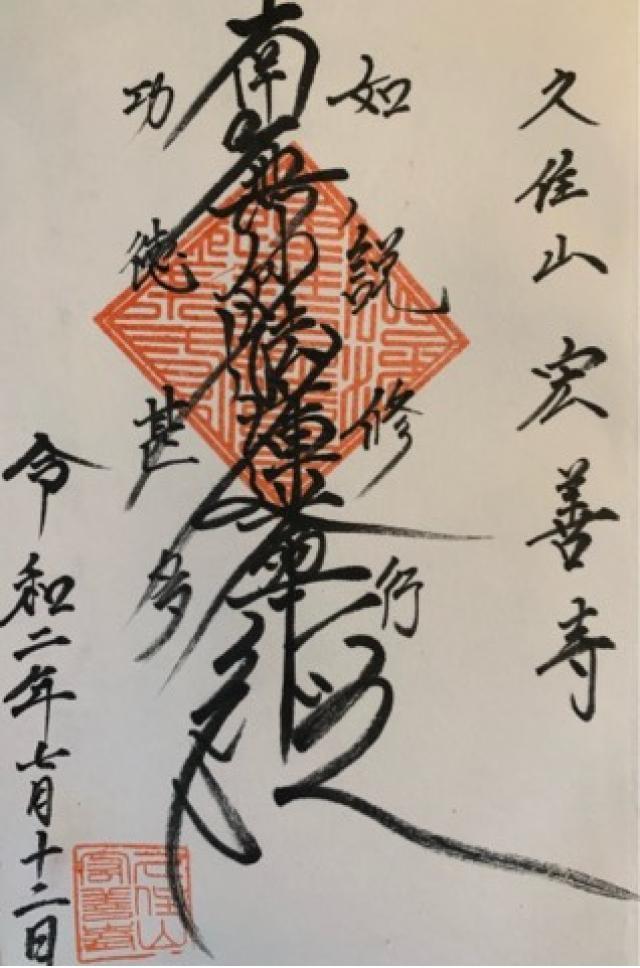 久住山 宏善寺
如説修行
南無妙法蓮華経
功徳甚多
令和二年七月十二日
久住山
宏善寺